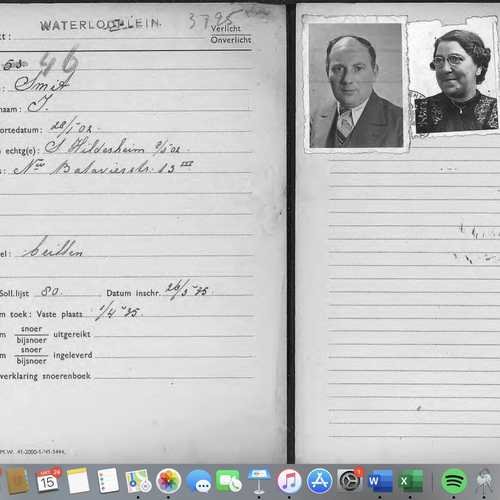 WATERLOOPLEIN.
3795
Verlicht
Onverlicht
46
Smit
naam: J.
ortedatum: 28/1 '02.
echtg(e): S. Hildesheim 9/5 02.
Nw Batavierstr. 13 III
el:
Soll.lijst 80. Datum inschr. 26/3 '35.
m toek: Vaste plaats 1/4 '35.
m snoer
bijsnoer uitgereikt
m snoer
bijsnoer ingeleverd
verklaring snoerenboek
M.W. 41-2000-5-'41-3444.
OKT.
15
W
X